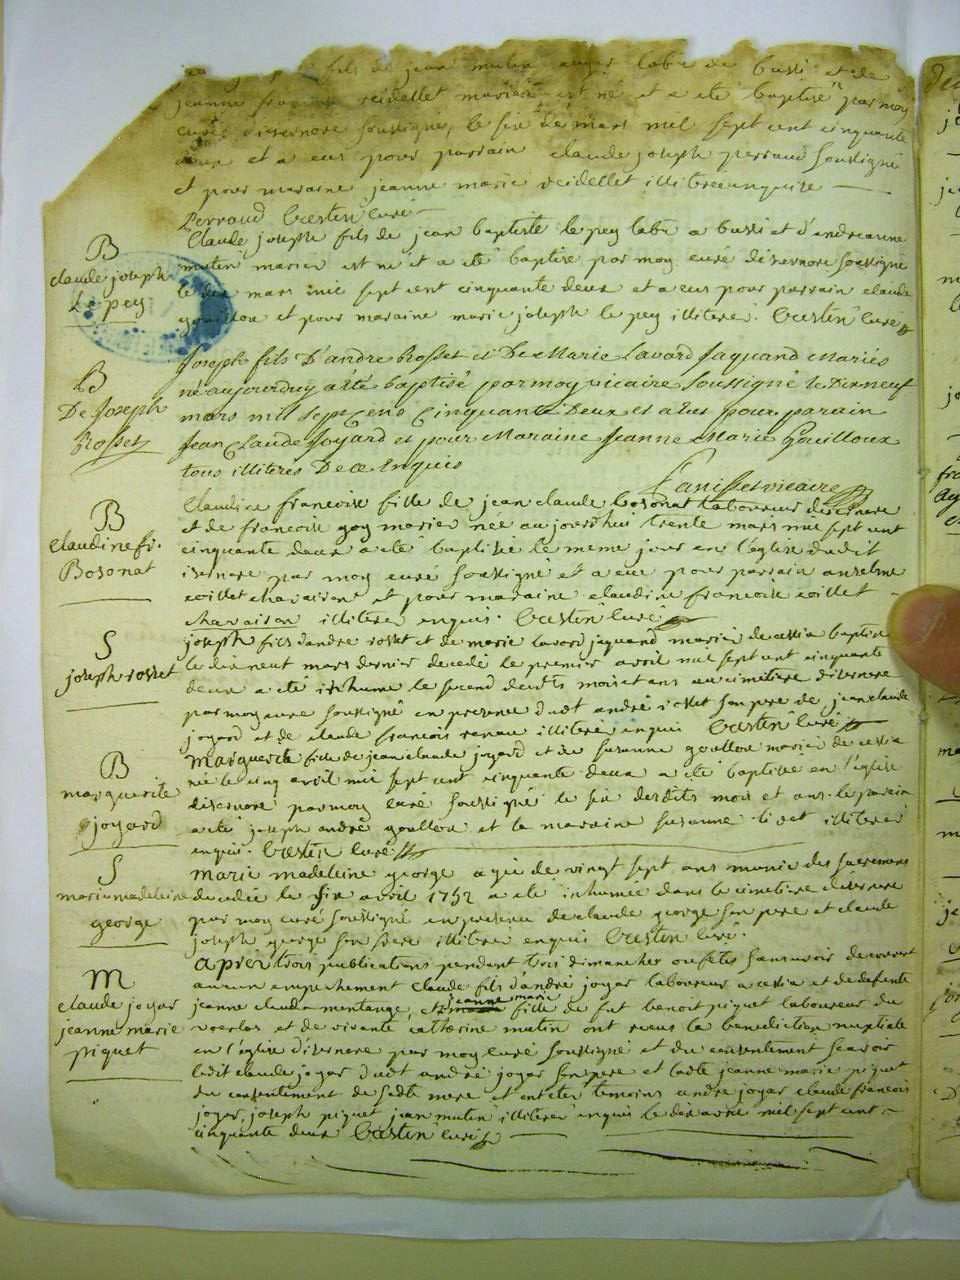 fils de jean mutin labr de bussi et de
jeanne françoise reidellet mariés est né et a eté baptisé par moy
curé disernore soussigné, le six de mars mil sept cent cinquante
deux et a eus pour parrain claude joseph perraud soussigné
et pour maraine jeanne marie reidellet illiteré enquise
Perraud Crestin curé
B
claude joseph
le pey
Claude joseph fils de jean baptiste le pey labr a bussi et d'andreanne
mutin mariez est né et a eté baptisé par moy curé disernore soussigné
le dix mars mil sept cent cinquante deux et a eus pour parrain claude
et pour maraine marie joseph le pey illiterez. Crestin curé
B
De Joseph
Rosset
Joseph fils D'andre Rosset et De Marie Lavard Jaquand Mariés
né aujourduy a été baptisé par moy vicaire soussigné le Dixneuf
mars mil sept cens Cinquante Deux et a eus pour parain
Jean Claude Joyard et pour Maraine Jeanne Marie Gouilloux
tous illiteres De ce Enquis
vicaire
B
Claudine fr.
Bosonat
Claudine francoise fille de jean claude bosonat laboureur disernore
et de francoise goy mariez née aujourdhui trente mars mil sept cent
cinquante deux a eté baptisée le meme jour en l'église dudit
isernore par moy curé soussigné et a eu pour parrain anselme
coillet chavaison et pour maraine claudine francoise coillet
chavaison illiterez enquis. Crestin curé
S
joseph rosset
joseph fils dandré rosset et de marie lavard jaquand mariez de cessia baptisé
le dixneuf mars dernier decedé le premier avril mil sept cent cinquante
deux a eté inhumé le second desdits mois et ans au cimetière disernore
par moy curé soussigné en presence dudt andré rosset son pere de jean claude
joyard et de claude francois illiteré enquis Crestin curé
B
marguerite
joyard
Marguerite fille de jean claude joyard et de susanne goullou mariez de cessia
née le cinq avril mil sept cent cinquante deux a eté baptisée en l'église
disernore par moy curé soussigné le six desdits mois et ans. le parain
a eté joseph andré goullou et la maraine susanne illiterez
enquis. Crestin curé
S
marie madeleine
george
Marie madeleine george agée de vingt sept ans munie des sacremens
decedée le six avril 1752 a eté inhumée dans le cimetière disernore
par moy curé soussigné en presence de claude george son pere et claude
joseph george son frere illiterez enquis Crestin curé.
M
claude joyar
jeanne marie
piquet
Apres trois publications pendant trois dimanches ou fetes sans avoir decouvert
aucun empechement claude fils d'andré joyar laboureur a cessia et de defunte
jeanne clauda mentange, et jeanne marie fille de fut benoit piquet laboureur du
voerlos et de vivante catherine mutin ont recus la benediction nuptiale
en l'église d'isernore par moy curé soussigné et du consentement scavoir
ledit claude joyar dudt andré joyar son pere et ladte jeanne marie piquet
du consentement de sadte mere et ont eter temoins andre joyar claude francois
joyar, joseph piquet jean mutin illiterez enquis le dix avril mil sept cent
cinquante deux Crestin curé